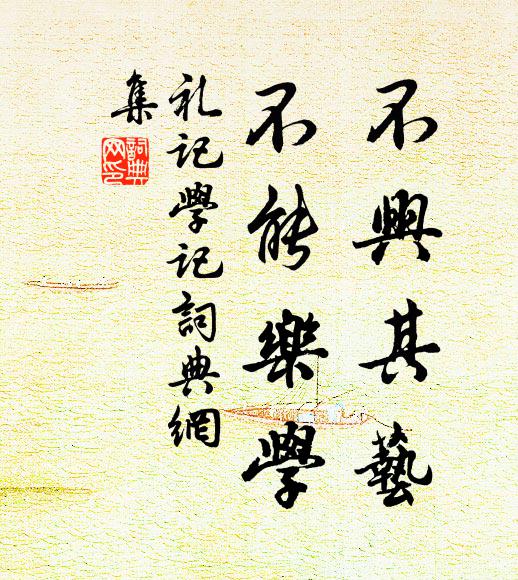 不興其藝
不能樂學
礼记學记詞典網
集
詞典
网印